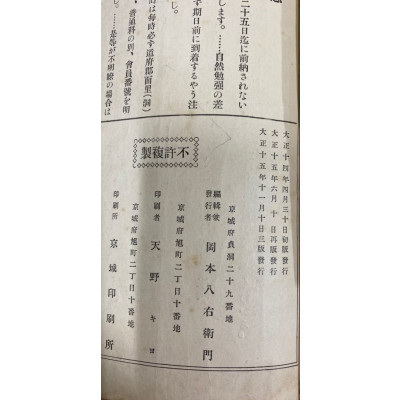 二十五日迄に前納されない
します。……自然勉强の差
ず期日前に到着するやう注
じ。
時は每時必ず道府郡面里(洞)
、普通科の別、會員番號を明
し。……是等が不明瞭の場合は
大正十四年四月三十日初版發行
大正十五年六月十日再版發行
大正十五年十一月十日三版發行
不許複製
京城府貞洞二十九番地
編輯兼
發行者 岡本八右衛門
京城府旭町二丁目十番地
印刷者 天野キヨ
京城府旭町二丁目十番地
印刷所 京城印刷所